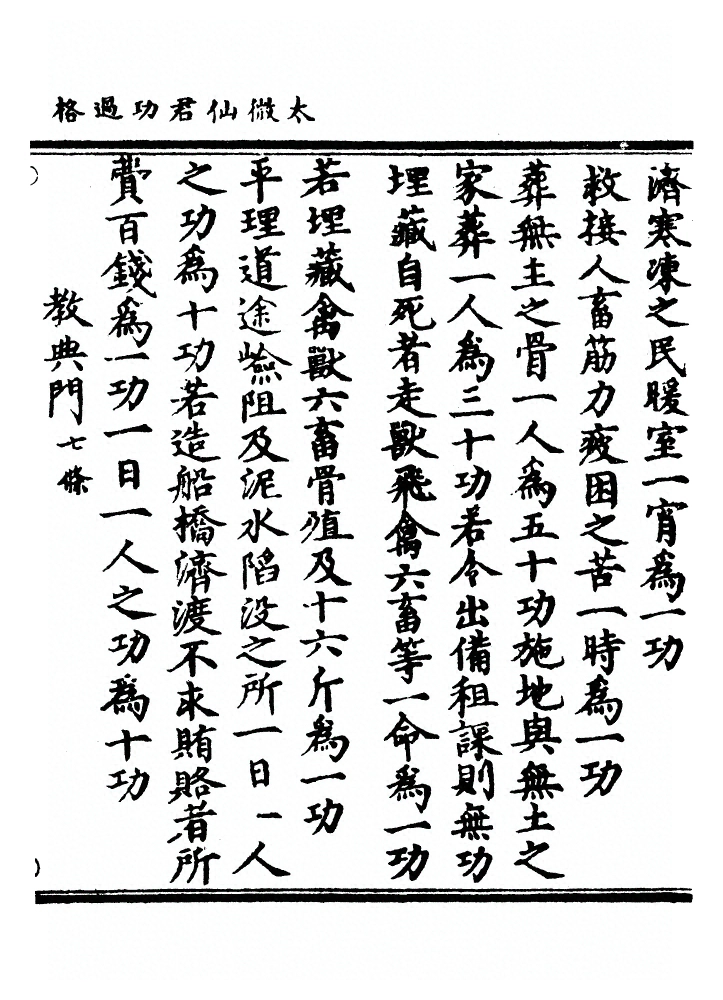 太微仙君功過格
濟寒凍之民暖室一宵爲一功
救接人畜筋力疲困之苦一時爲一功
葬無主之骨一人爲五十功施地與無土之
家葬一人爲三十功若令出備租課則無功
埋藏自死者走獸飛禽六畜等一命爲一功
若埋藏禽獸六畜骨殖及十六斤爲一功
平理道途嶮阻及泥水陷没之所一日一人
之功爲十功若造船橋濟渡不求賄賂者所
費百錢爲一功一日一人之功爲十功
教典門七條